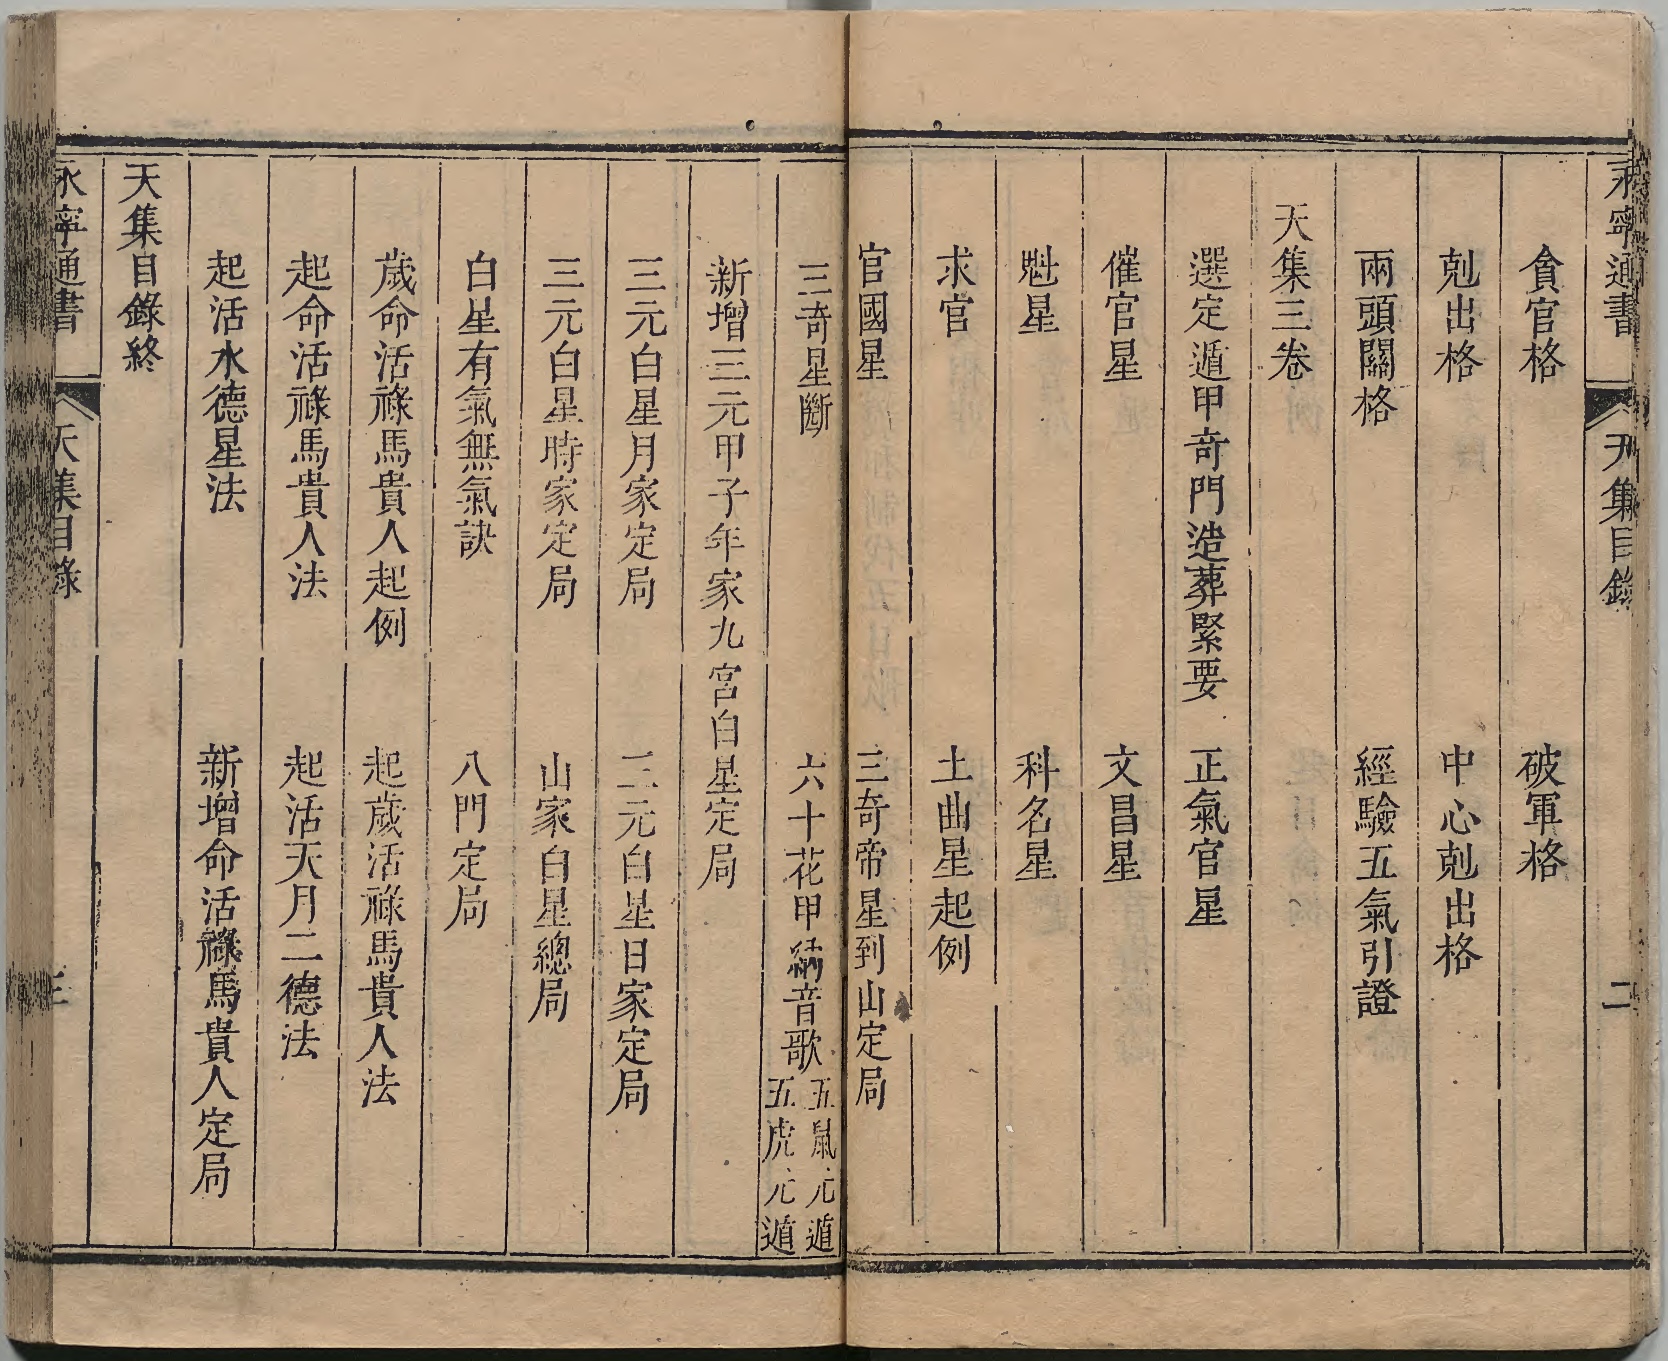 永寧通書 天集目錄 二
貪官格 破軍格
剋出格 中心剋出格
兩頭關格 經驗五氣引證
天集三卷
選定遁甲奇門造葬緊要 正氣官星
催官星 文昌星
魁星 科名星
求官 土曲星起例
官國星 三奇帝星到山定局
三奇星斷 六十花甲納音歌 五鼠元遁 五虎元遁
新增三元甲子年家九宮白星定局
三元白星月家定局 三元白星日家定局
三元白星時家定局 山家白星總局
白星有氣無氣訣 八門定局
歲命活祿馬貴人起例 起歲活祿馬貴人法
起命活祿馬貴人法 起活天月二德法
起活水德星法 新增命活祿馬貴人定局
天集目錄終
永寧通書 天集目錄 三